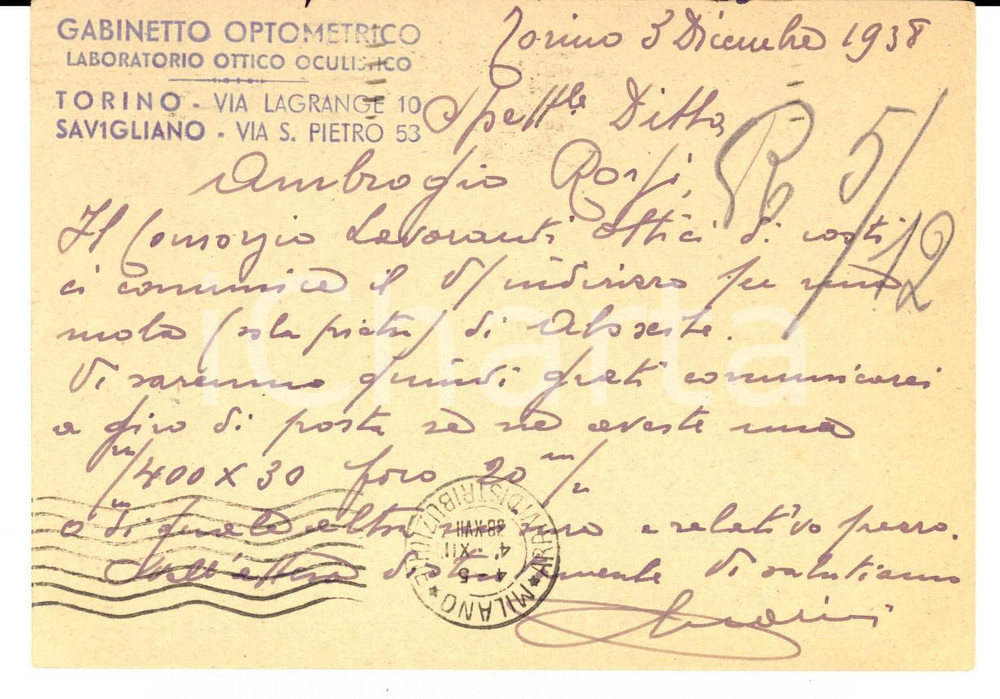 GABINETTO OPTOMETRICO
LABORATORIO OTTICO OCULISTICO
TORINO - VIA LAGRANGE 10
SAVIGLIANO - VIA S. PIETRO 53
Torino 3 Dicembre 1938
Spett.le Ditta
Ambrogio Rossi,
R 5/12
Il Consorzio Lavoranti Ottici di costì
ci comunica il V/ indirizzo per una
mola (sola pietra) di
Vi saremmo quindi grati comunicarci
a giro di posta se ne aveste una
m/m 400 x 30 foro 20 m/m
o di quale altra e relativo prezzo.
Nell'attesa distintamente Vi salutiamo
MILANO
ARRIVI DISTRIBUZ.
4-5
4 XII
38 XVII
iCharta